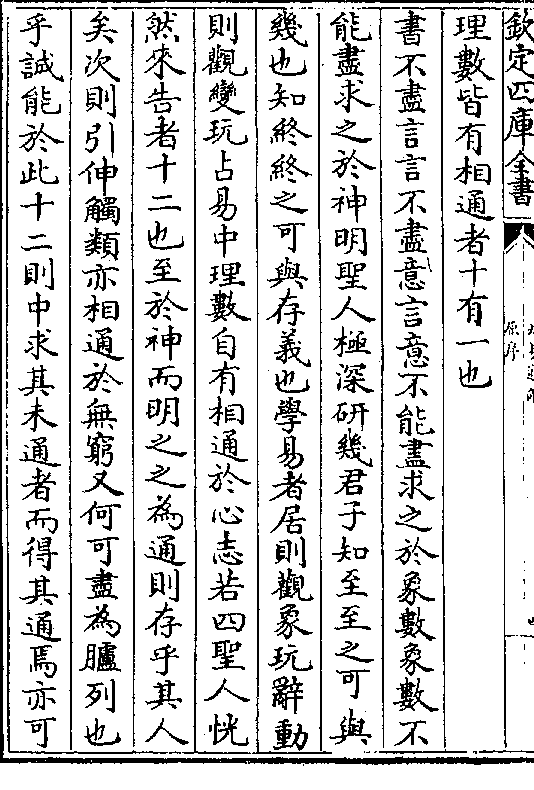 欽定四庫全書
原序
理數皆有相通者十有一也
書不盡言言不盡意言意不能盡求之於象數象數不
能盡求之於神明聖人極深研幾君子知至至之可與
幾也知終終之可與存義也學易者居則觀象玩辭動
則觀變玩占易中理數自有相通於心志若四聖人恍
然來告者十二也至於神而明之之為通則存乎其人
矣次則引伸觸類亦相通於無窮又何可盡為臚列也
乎誠能於此十二則中求其未通者而得其通焉亦可